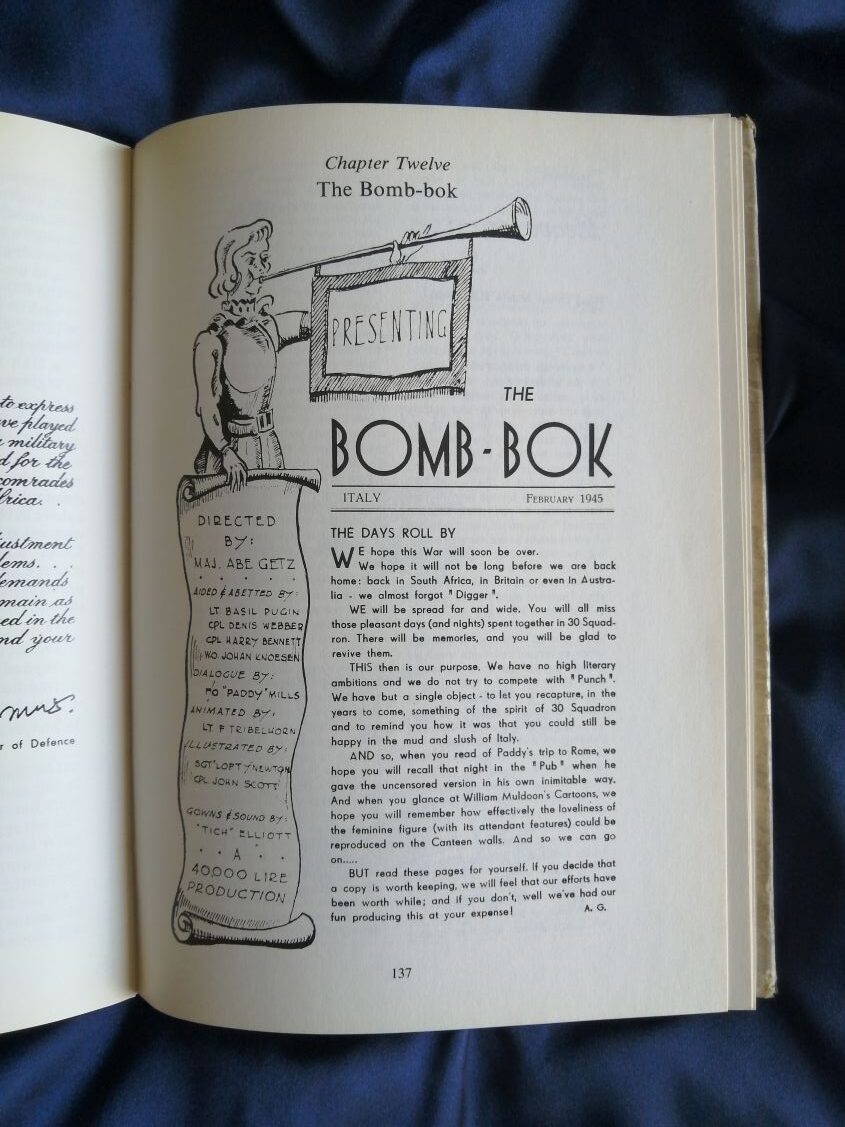 to express
ve played
military
d for the
comrades
frica. . .
justment
lems. . .
demands
main as
ed in the
nd your
r of Defence
Chapter Twelve
The Bomb-bok
PRESENTING
THE
BOMB-BOK
ITALY FEBRUARY 1945
DIRECTED
BY:
MAJ. ABE GETZ
AIDED & ABETTED BY:
LT BASIL PUGIN
CPL DENIS WEBBER
CPL HARRY BENNETT
WO. JOHAN KNOESEN
DIALOGUE BY:
FO "PADDY" MILLS
ANIMATED BY:
LT. F TRIBELHORN
ILLUSTRATED BY:
SGT "LOFTY" NEWTON
CPL JOHN SCOTT
GOWNS & SOUND BY:
"TICH" ELLIOTT
. . A . .
40,000 LIRE
PRODUCTION
THE DAYS ROLL BY
WE hope this War will soon be over.
We hope it will not be long before we are back
home: back in South Africa, in Britain or even in Austra-
lia - we almost forgot "Digger".
WE will be spread far and wide. You will all miss
those pleasant days (and nights) spent together in 30 Squad-
ron. There will be memories, and you will be glad to
revive them.
THIS then is our purpose. We have no high literary
ambitions and we do not try to compete with "Punch".
We have but a single object - to let you recapture, in the
years to come, something of the spirit of 30 Squadron
and to remind you how it was that you could still be
happy in the mud and slush of Italy.
AND so, when you read of Paddy's trip to Rome, we
hope you will recall that night in the "Pub" when he
gave the uncensored version in his own inimitable way.
And when you glance at William Muldoon's Cartoons, we
hope you will remember how effectively the loveliness of
the feminine figure (with its attendant features) could be
reproduced on the Canteen walls. And so we can go
on.....
BUT read these pages for yourself. If you decide that
a copy is worth keeping, we will feel that our efforts have
been worth while; and if you don't, well we've had our
fun producing this at your expense! A. G.
137